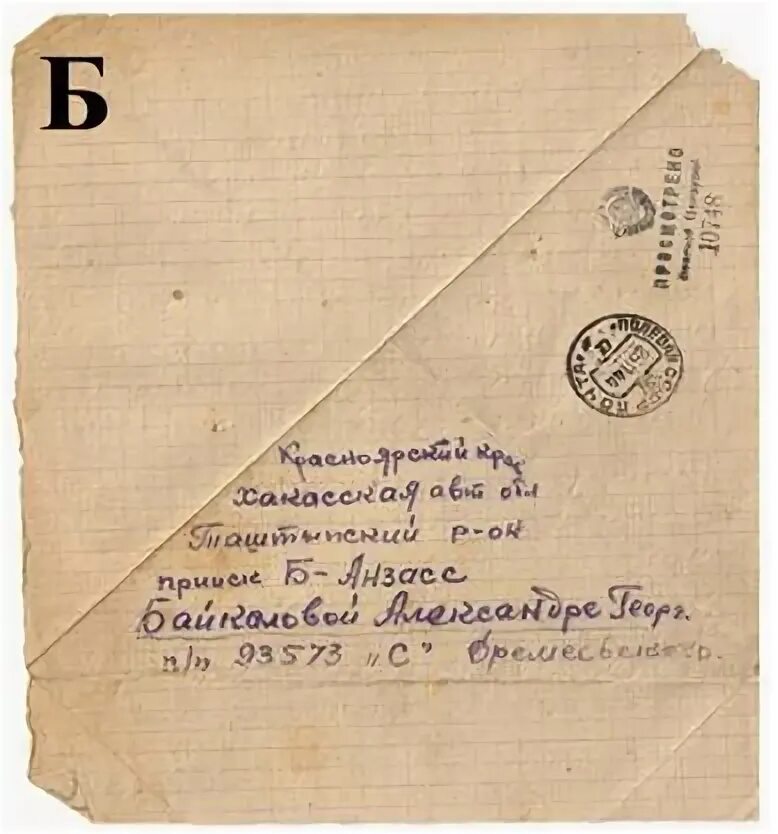 Б
ПРОСМОТРЕНО
Военной Цензурой
10748
ПОЛЕВАЯ
ПОЧТА
СССР
44
Красноярский край
Хакасская авт обл
Таштыпский р-он
прииск Б-Анзасс
Байкаловой Александре Георг.
п/п 93573 „С"